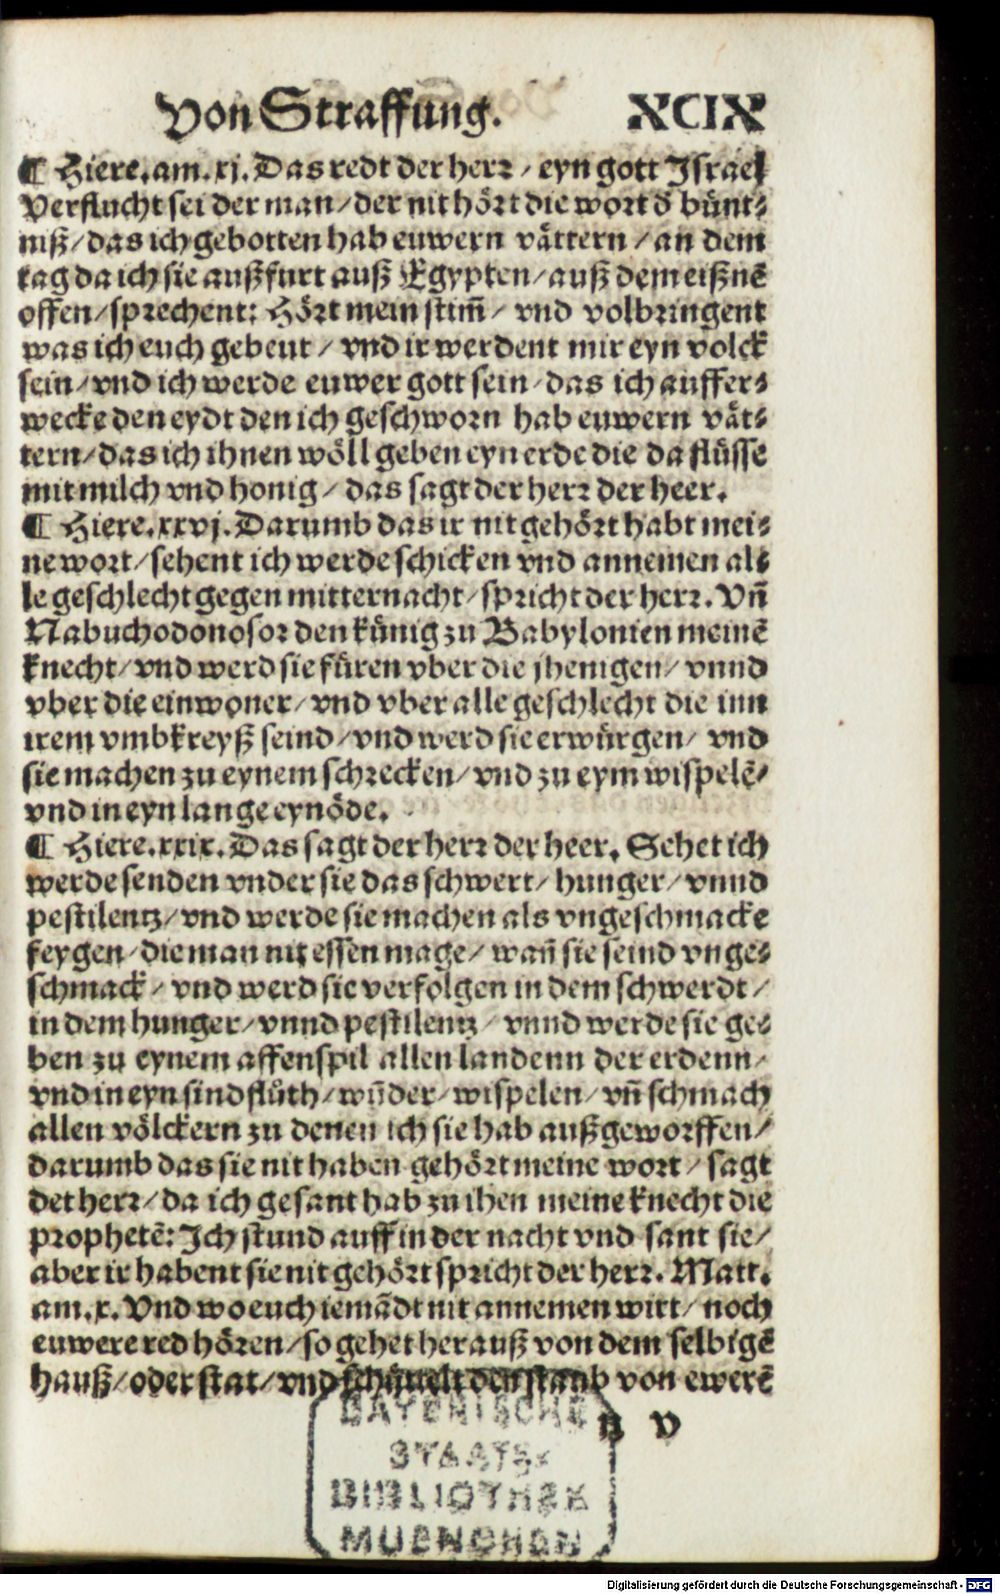 Von Straffung. XCIX
¶ Hiere. am. xj. Das redt der herꝛ / eyn gott Israel
Verflucht sei der man / der nit hoͤꝛt die woꝛt d̄ buͤnt⸗
niß / das ich gebotten hab euwern vaͤttern / an dem
tag da ich sie außfurt auß Egypten / auß dem eißnē
offen / spꝛechent: Hoͤꝛt mein stim̄ / vnd volbꝛingent
was ich euch gebeut / vnd ir werdent mir eyn volck
sein / vnd ich werde euwer gott sein / das ich auffer⸗
wecke den eydt den ich geschwoꝛn hab euwern vaͤt⸗
tern / das ich ihnen woͤll geben eyn erde die da fluͤsse
mit milch vnd honig / das sagt der herꝛ der heer.
¶ Hiere. xxvj. Darumb das ir nit gehoͤꝛt habt mei⸗
ne woꝛt / sehent ich werde schicken vnd annemen al⸗
le geschlecht gegen mitternacht / spꝛicht der herꝛ. Vn̄
Nabuchodonosoꝛ den kuͤnig zu Babylonien meinē
knecht / vnd werd sie fuͤren vber die jhenigen / vnnd
vber die einwoner / vnd vber alle geschlecht die inn
irem vmbkreyß seind / vnd werd sie erwuͤrgen / vnd
sie machen zu eynem schꝛecken / vnd zu eym wispelē /
vnd in eyn lange eynoͤde.
¶ Hiere. xxix. Das sagt der herꝛ der heer. Sehet ich
werde senden vnder sie das schwert / hunger / vnnd
pestilentz / vnd werde sie machen als vngeschmacke
feygen / die man nit essen mage / wan̄ sie seind vnge⸗
schmack / vnd werd sie verfolgen in dem schwerdt /
in dem hunger / vnnd pestilentz / vnnd werde sie ge⸗
ben zu eynem affenspil allen landenn der erdenn /
vnd in eyn sindfluͤth / wūder / wispelen / vn̄ schmach
allen voͤlckern zu denen ich sie hab außgewoꝛffen /
darumb das sie nit haben gehoͤꝛt meine woꝛt / sagt
det herꝛ / da ich gesant hab zu ihen meine knecht die
pꝛophetē: Ich stund auff in der nacht vnd sant sie /
aber ir habent sie nit gehoͤꝛt spꝛicht der herꝛ. Matt.
am. x. Vnd wo euch iemādt nit annemen wirt / noch
euwere red hoͤꝛen / so gehet herauß von dem selbigē
hauß / oder stat / vnd schüttelt den staub von ewerē
n v
BAYERISCHE
STAATS-
BIBLIOTHEK
MUENCHEN
Digitalisierung gefördert durch die Deutsche Forschungsgemeinschaft - DFG